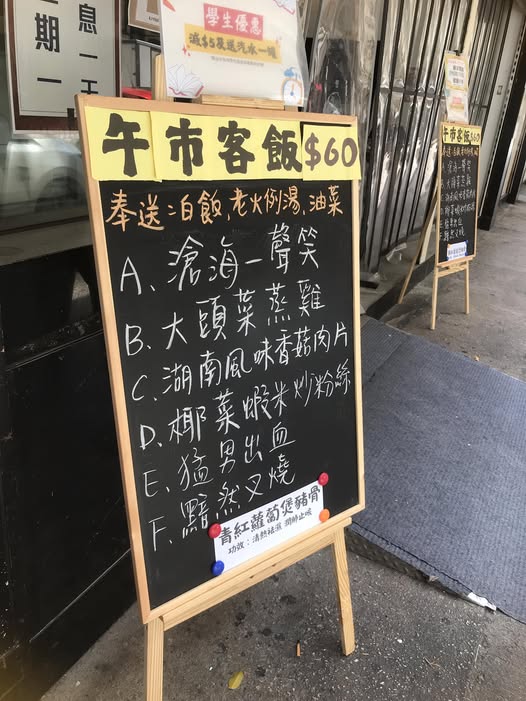 息一天
期一
學生優惠
減$5及送汽水一罐
午市客飯$60
奉送:白飯,老火例湯,油菜
A、滄海一聲笑
B、大頭菜蒸雞
C、湖南風味香菇肉片
D、椰菜蝦米炒粉絲
E、猛男出血
F、黯然叉燒
青紅蘿蔔煲豬骨
功效:清熱袪濕 潤肺止咳
午市客飯$60